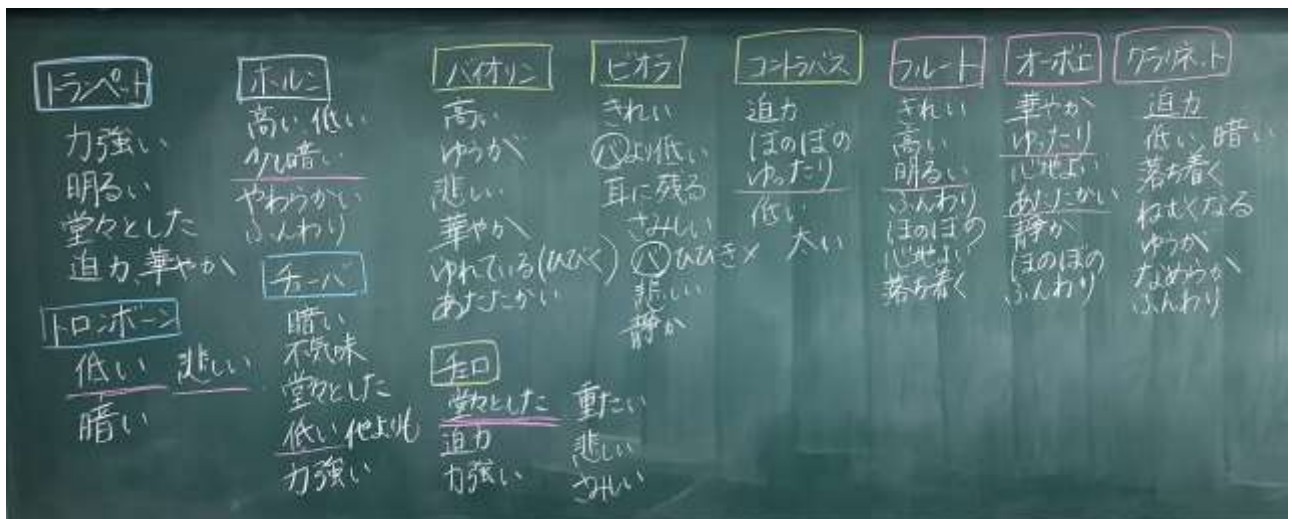 トランペット
力強い
明るい
堂々とした
迫力 華やか
トロンボーン
低い 悲しい
暗い
ホルン
高い 低い
少し暗い
やわらかい
ふんわり
チューバ
暗い
不気味
堂々とした
低い 他よりも
力強い
バイオリン
高い
ゆうが
悲しい
華やか
ゆれている(ひびく)
あたたかい
チェロ
堂々とした 重たい
迫力 悲しい
力強い さみしい
ビオラ
きれい
バより低い
耳に残る
さみしい
バ ひびき×
悲しい
静か
コントラバス
迫力
ほのぼの
ゆったり
低い
太い
フルート
きれい
高い
明るい
ふんわり
ほのぼの
心地よい
落ち着く
オーボエ
華やか
ゆったり
心地よい
あたたかい
静か
ほのぼの
ふんわり
クラリネット
迫力
低い 暗い
落ち着く
ねむくなる
ゆうが
なめらか
ふんわり